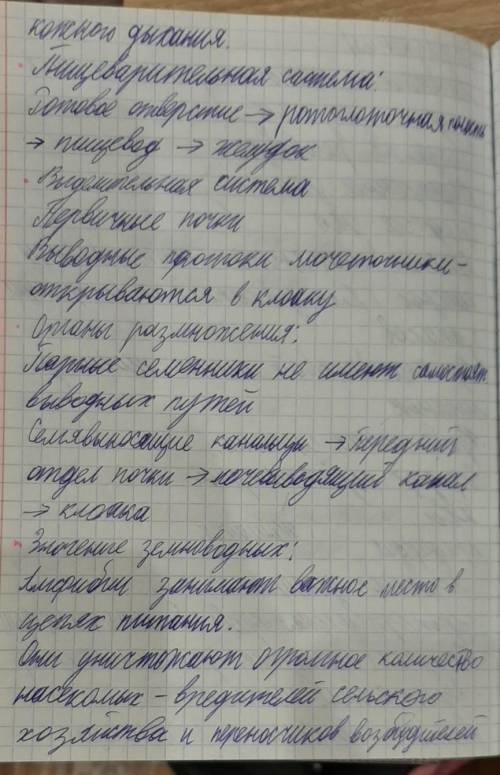 кожного дыхания.
Пищеварительная система:
Ротовое отверстие → ротоглоточная полость
→ пищевод → желудок
Выделительная система
Первичные почки
Выводные протоки мочеточники -
открываются в клоаку
Органы размножения:
Парные семенники не имеют самостоят.
выводных путей
Семявыносящие канальцы → передний
отдел почки → мочевыводящий канал
→ клоака
Значение земноводных:
Амфибии занимают важное место в
цепях питания.
Они уничтожают огромное количество
насекомых - вредителей сельского
хозяйства и переносчиков возбудителей